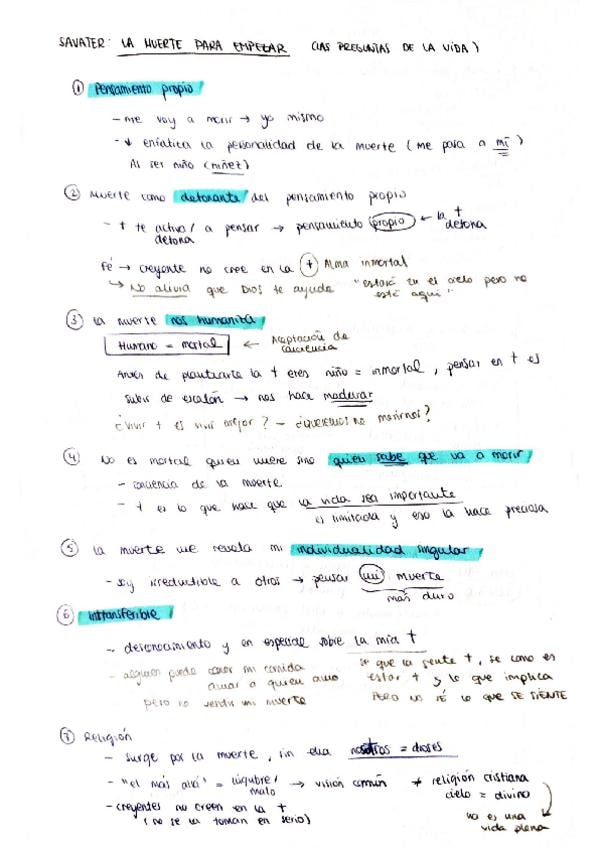 SAVATER: LA MUERTE PARA EMPEZAR (LAS PREGUNTAS DE LA VIDA)
① Pensamiento propio
- me voy a morir → yo mismo
- ↓ enfatiza la personalidad de la muerte (me pasa a mí)
Al ser niño (niñez)
② Muerte como detonante del pensamiento propio
- † te activa/detona a pensar → pensamiento propio ← la † detona
Fé → creyente no cree en la † Alma inmortal
↳ No alivia que Dios te ayude "estará en el cielo pero no está aquí"
③ La muerte nos humaniza
Humano = mortal ← Aceptación de conciencia
Antes de plantearte la † eres niño = inmortal, pensar en † es
subir de escalón → nos hace madurar
¿vivir † es vivir mejor? – ¿queremos no morirnos?
④ No es mortal quien muere sino quien sabe que va a morir
- conciencia de la muerte
- † es lo que hace que la vida sea importante
es limitada y eso la hace preciosa
⑤ La muerte me revela mi individualidad singular
- soy irreductible a otros → pensar mi muerte
más duro
⑥ intransferible
- desconocimiento y en especial sobre la mía †
- alguien puede comer mi comida
amar a quien amo
pero no vendir mi muerte
se que la gente †, se como es
estar † y lo que implica
PERO NO SÉ LO QUE SE SIENTE
⑦ Religión
- surge por la muerte, sin ella nosotros = dioses
- "el más allá" = lúgubre/malo → visión común ≠ religión cristiana
cielo = divino
- creyentes no creen en la †
(no se la toman en serio)
no es una
vida plena